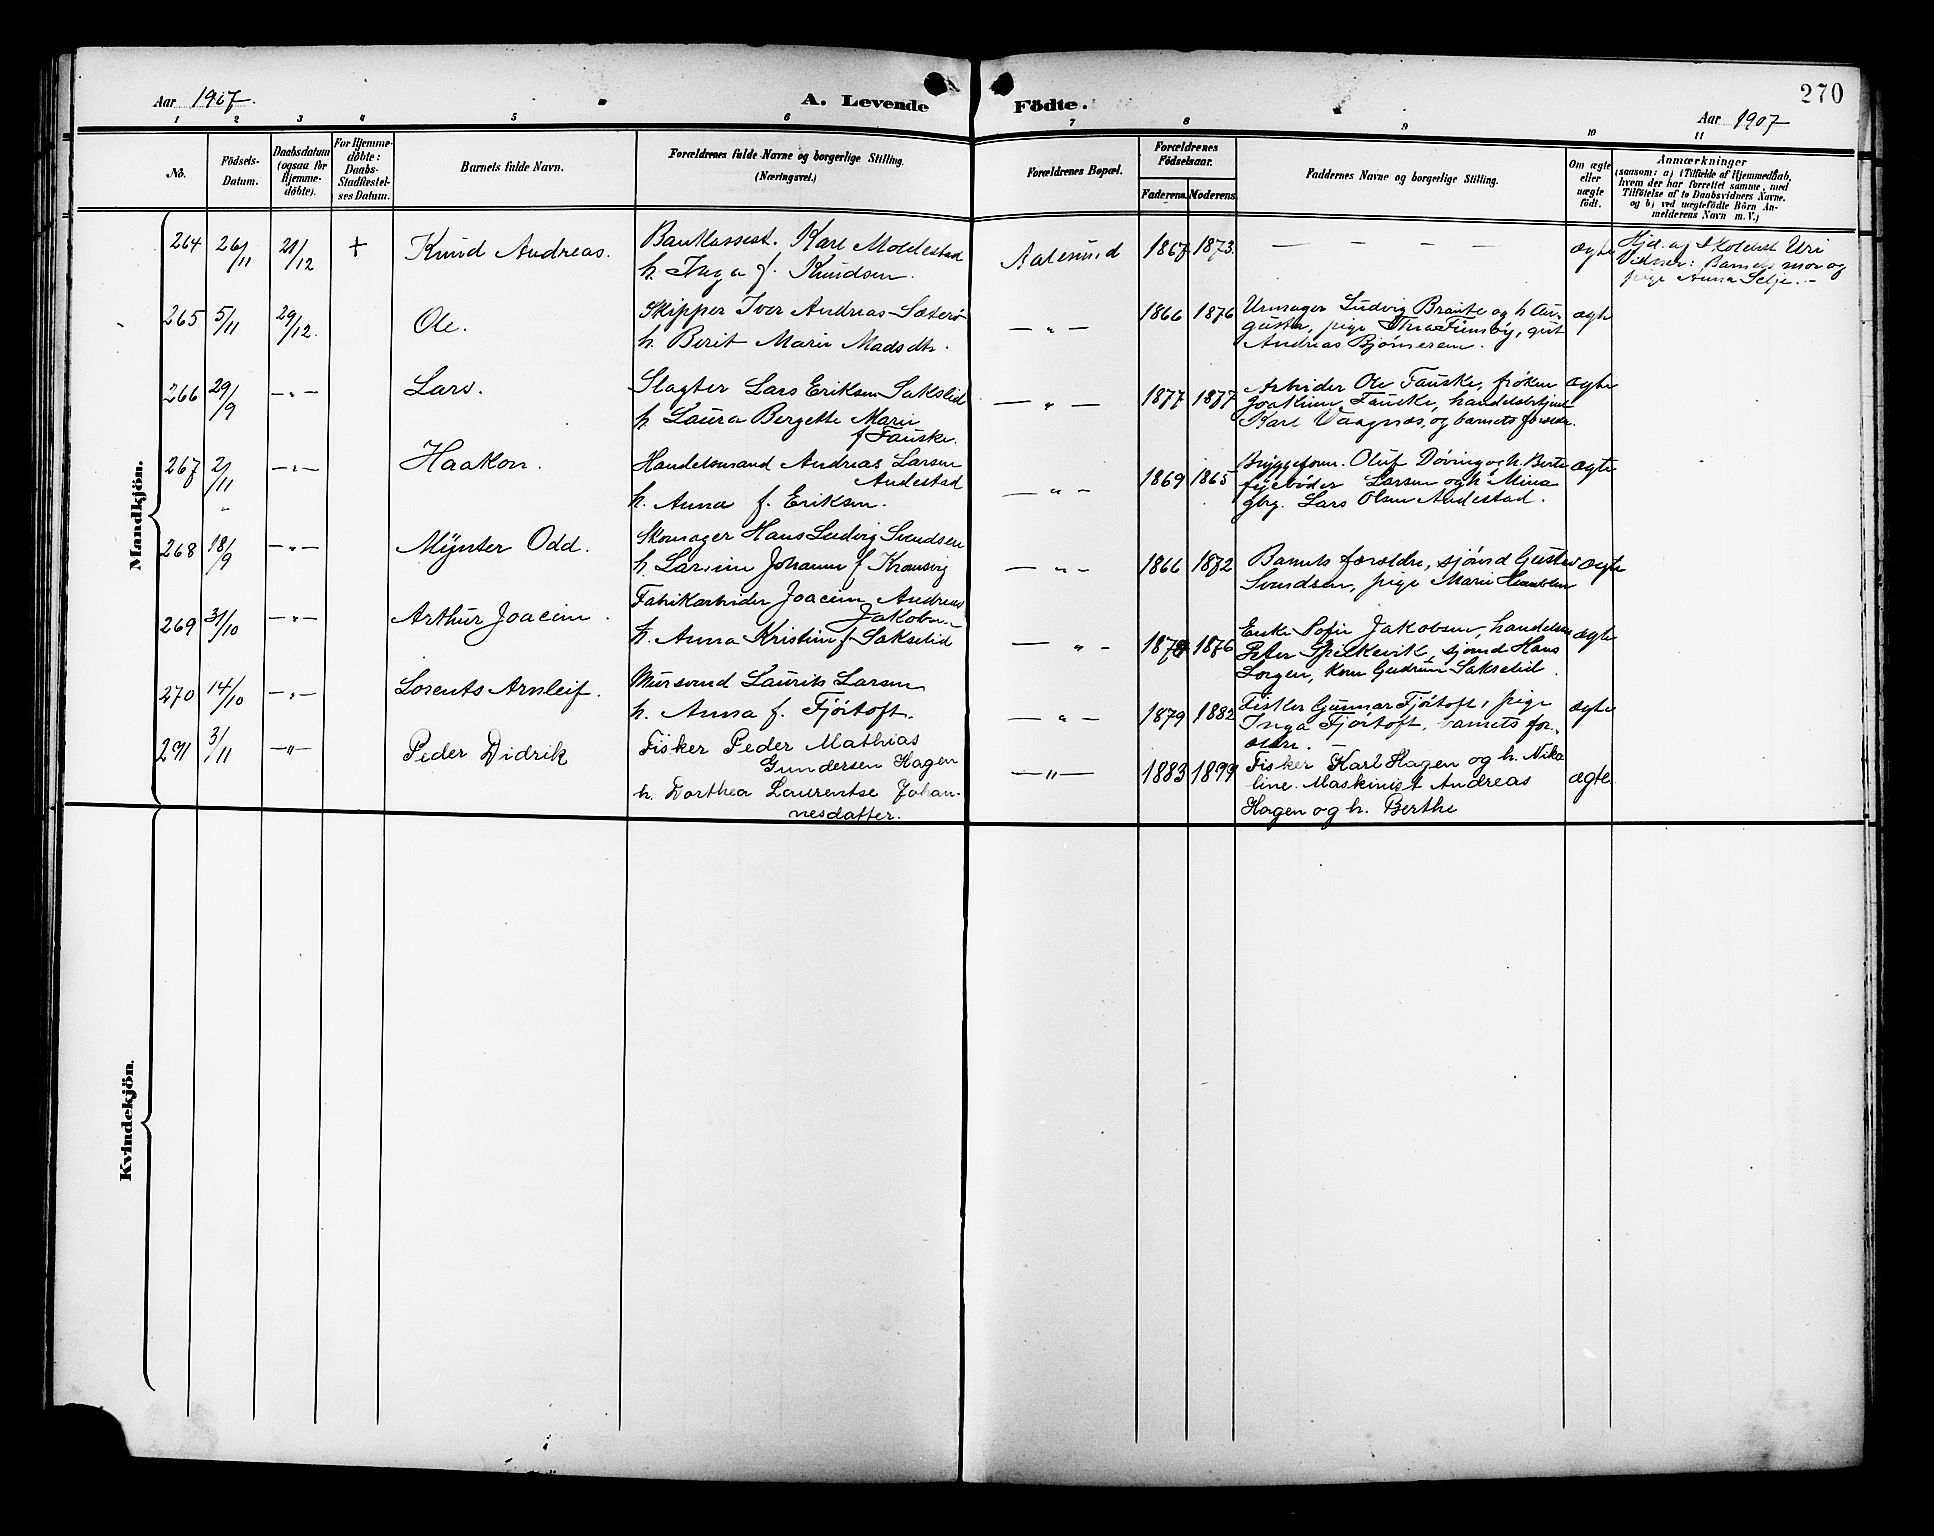 270
Aar 1907.
A. Levende Födte.
Aar 1907
1 2 3 4 5 6 7 8 9 10 11
No.
Födsels-Datum.
Daabsdatum (ogsaa for Hjemme-döbte).
For Hjemme-döbte: Daabs-Stadfæstel-ses Datum.
Barnets fulde Navn.
Forældrenes fulde Navne og borgerlige Stilling.
(Næringsvei.)
Forældrenes Bopæl.
Forældrenes Födselsaar.
Faderens. Moderens.
Faddernes Navne og borgerlige Stilling.
Om ægte eller uægte födt.
Anmærkninger
(saasom: a) i Tilfælde af Hjemmedaab,
hvem der har forrettet samme, med
Tilföielse af to Daabsvidners Navne.
og b) ved uægtefödte Börn An-
melderens Navn m. V.)
Mandkjön.
264 26/11 21/12 + Knud Andreas.
Bankassist. Karl Moldestad
h. Inga f. Knudsen.
Aalesund 1867 1873. — — — — ægte
Hjd. af Skolebest Uri
Vidner: Barnets mor og
pige Anna Selje.
265 5/11 29/12. Ole.
Skipper Iver Andreas Sæterö
h. Berit Marie Madsdtr.
— " — 1866 1876
Urmager Ludvig Brante og h Au-
gusta, pige Thea Finsöy, gut
Andreas Bjørnerem.
ægte
266 29/9 — " — Lars.
Slagter Lars Eriksen Sakslid
h Laura Bergette Marie
f Fauske.
— " — 1877 1877
Arbeider Ole Fauske, frøken
Joakim Fauske, handelsbetjent
Karl Vaagnæs, og barnets forældr.
ægte
267 2/11 — " — Haakon.
Handelsmand Andreas Larsen
Andestad
h. Anna f. Eriksen.
— " — 1869 1865
Bryggeform. Oluf Døving og h. Berte
Larsen og h Mina
gbr. Lars Olsen Andestad.
ægte
268 18/9 — " — Mynter Odd.
Skomager Hans Ludvig Svendsen
h. Larsine Johanne f Kransvig
— " — 1866 1872
Barnets forældre, sjømd Gustav
Svendsen, pige Marie
ægte
269 31/10 — " — Arthur Joacim.
Fabrikarbeider Joacim Andreas
Jakobsen
h. Anna Kristine f Sakselid
— " — 1874 1876
Enke Sofie Jakobsen, handelsm
Peter Spilkevik, sjømd Hans
Longen, kone Gudrun Sakselid.
ægte
270 14/10 — " — Lorents Arnleif.
Mursvend Laurits Larsen
h. Anna f. Fjörtoft.
— " — 1879 1882
Fisker Gunnar Fjörtoft, pige
Inga Fjörtoft, barnets for-
ældre.
ægte
271 3/11 — " — Peder Didrik
Fisker Peder Mathias
Gundersen Hagen
h. Dorthea Laurentse Johan-
nesdatter.
— " — 1883 1899
Fisker Karl Hagen og h. Nika
line. Maskinist Andreas
Hagen og h. Berthe
ægte
Kvindekjön.